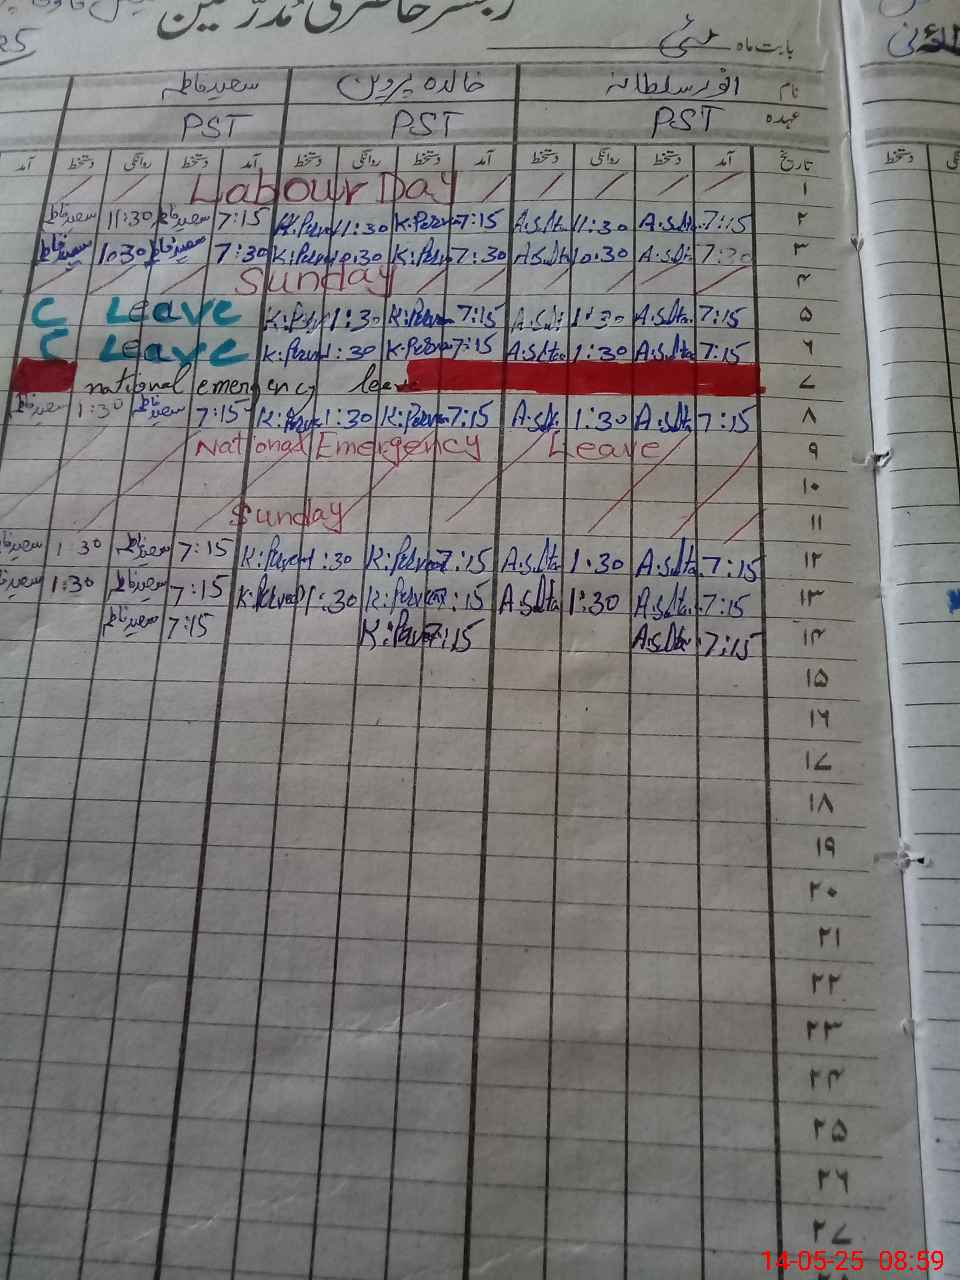 رجسٹر حاضری مُدرّسین
بابت ماہ مئی
25
نام انورسلطانہ خالدہ پروین سعیدفاطمہ
عہدہ PST PST PST
تاریخ آمد دستخط روانگی دستخط آمد دستخط روانگی دستخط آمد دستخط روانگی دستخط آمد
۱ Labour Day
۲ 7:15 A.Slta. 11:30 A.Slta. 7:15 K.Perv 11:30 K.Perv 7:15 سعیدفاطمہ 11:30 سعیدفاطمہ
۳ 7:30 A.Slta 10:30 A.Slta 7:30 K.Perv 10:30 K.Perv 7:30 سعیدفاطمہ 10:30 سعیدفاطمہ
۴ Sunday
۵ 7:15 A.Slta. 1:30 A.Slt 7:15 K.Perv 1:30 K.Perv C Leave
۶ 7:15 A.Slta. 1:30 A.Slta. 7:15 K.Perv 1:30 K.Perv C Leave
۷ national emergency leave
۸ 7:15 A.Slta. 1:30 A.Slt. 7:15 K.Perv 1:30 K.Perv 7:15 سعیدفاطمہ 1:30 سعیدفاطمہ
۹ National Emergency Leave
۱۰
۱۱ Sunday
۱۲ 7:15 A.Slta. 1:30 A.Slta. 7:15 K.Perv 1:30 K.Perv 7:15 سعیدفاطمہ 1:30 سعیدفاطمہ
۱۳ 7:15 A.Slta. 1:30 A.Slta 7:15 K.Perv 1:30 K.Perv 7:15 سعیدفاطمہ 1:30 سعیدفاطمہ
۱۴ 7:15 A.Slta. 7:15 K.Perv 7:15 سعیدفاطمہ
۱۵
۱۶
۱۷
۱۸
۱۹
۲۰
۲۱
۲۲
۲۳
۲۴
۲۵
۲۶
۲۷
14-05-25 08:59